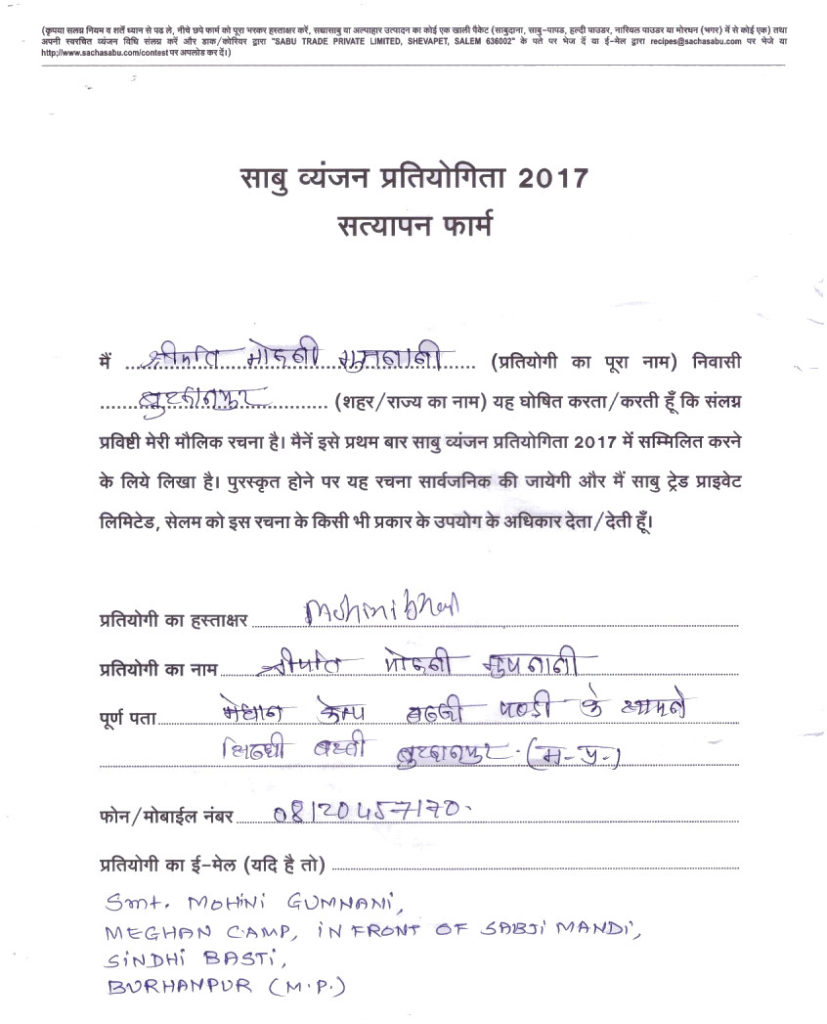 (कृपया सलग्न नियम व शर्तें ध्यान से पढ ले, नीचे छपे फार्म को पूरा भरकर हस्ताक्षर करें, सच्चासाबु या अल्पाहार उत्पादन का कोई एक खाली पैकेट (साबुदाना, साबु-पापड, हल्दी पाउडर, नारियल पाउडर या मोरधन (भगर) में से कोई एक) तथा
अपनी स्वरचित व्यंजन विधि संलग्न करें और डाक/कोरियर द्वारा "SABU TRADE PRIVATE LIMITED, SHEVAPET, SALEM 636002" के पते पर भेज दें या ई-मेल द्वारा recipes@sachasabu.com पर भेजे या
http://www.sachasabu.com/contest पर अपलोड कर दें।)
साबु व्यंजन प्रतियोगिता 2017
सत्यापन फार्म
मैं श्रीमति मोहनी गुमनानी (प्रतियोगी का पूरा नाम) निवासी
बुरहानपुर (शहर/राज्य का नाम) यह घोषित करता/करती हूँ कि संलग्न
प्रविष्टी मेरी मौलिक रचना है। मैनें इसे प्रथम बार साबु व्यंजन प्रतियोगिता 2017 में सम्मिलित करने
के लिये लिखा है। पुरस्कृत होने पर यह रचना सार्वजनिक की जायेगी और मैं साबु ट्रेड प्राइवेट
लिमिटेड, सेलम को इस रचना के किसी भी प्रकार के उपयोग के अधिकार देता/देती हूँ।
प्रतियोगी का हस्ताक्षर
प्रतियोगी का नाम श्रीमति मोहनी गुमनानी
पूर्ण पता मेघान केम्प सब्जी मण्डी के सामने
सिन्धी बस्ती बुरहानपुर (म-प्र-)
फोन/मोबाईल नंबर 08120457170
प्रतियोगी का ई-मेल (यदि है तो)
Smt. MOHINI GUMNANI,
MEGHAN CAMP, IN FRONT OF SABJI MANDI,
SINDHI BASTI,
BURHANPUR (M.P.)